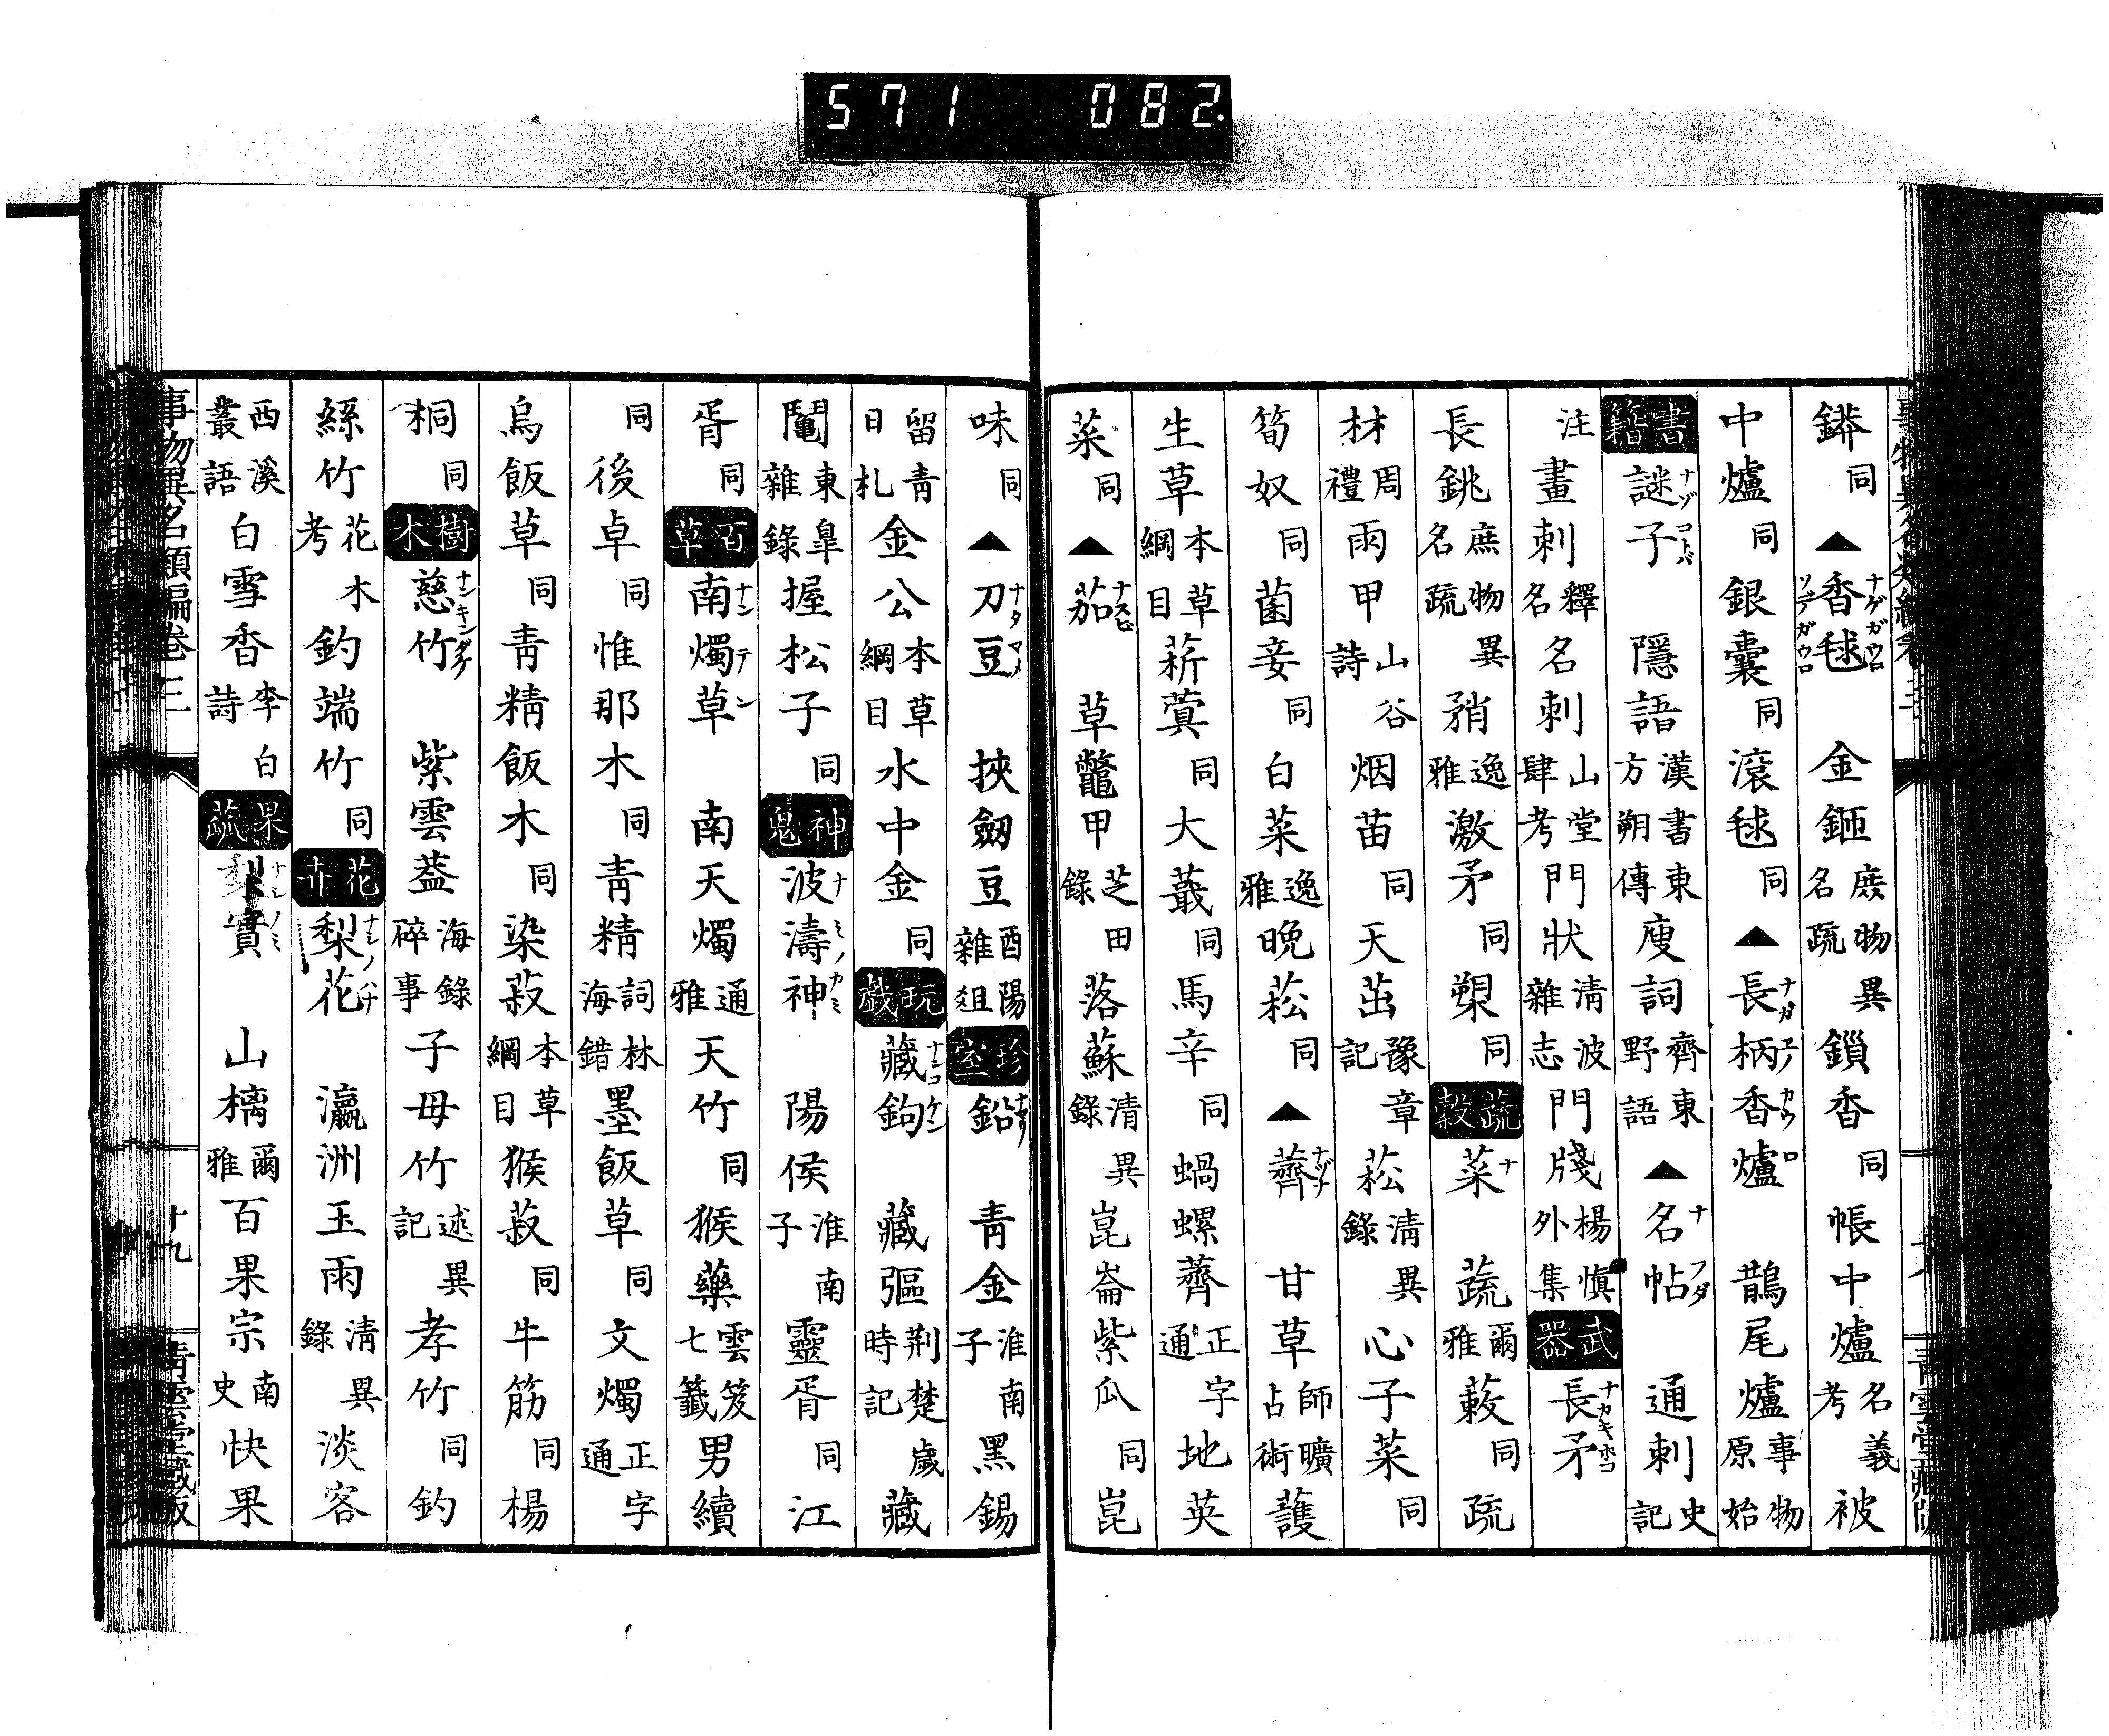 571 082.
鏻同▲香毬ナゲガウロソデガウロ 金鉔庶物異名疏鎻香同帳中爐名義考被
中爐同銀囊同滾毬同▲長柄香爐ナガエノカウロ 鵲尾爐事物原始
書籍謎子ナゾコトバ 隱語漢書東方朔傳廋詞齊東野語▲名帖ナフダ 通刺史記
注畫刺釋名名刺山堂肆考門狀清波雜志門牋楊愼外集武器長矛ナカキホコ
長銚庶物異名疏矟逸雅激矛同槊同蔬穀菜ナ 蔬爾雅蔌同疏
材周禮雨甲山谷詩烟苗同天茁豫章記菘清異錄心子菜同
筍奴同菌妾同白菜逸雅晚菘同▲薺ナヅナ 甘草師曠占術護
生草本草綱目菥蓂同大蕺同馬辛同蝸螺薺正字通地英
菜同▲茄ナスビ 草鼈甲芝田錄落蘇清異錄崑崙紫瓜同崑
味同▲刀豆ナタマメ 挾劒豆酉陽雜俎珍宝鉛ナマリ 青金淮南子黑錫
留青日札金公本草綱目水中金同玩戲藏鉤ナンコケン 藏彄荊楚歲時記藏
鬮東皐雜錄握松子同神鬼波濤神ナミノカミ 陽侯淮南子靈胥同江
胥同百草南燭草ナンテン 南天燭通雅天竹同猴藥雲笈七籤男續
同後卓同惟那木同青精詞林海錯墨飯草同文燭正字通
烏飯草同青精飯木同染菽本草綱目猴菽同牛筋同楊
桐同樹木慈竹ナンキンダケ 紫雲葢海錄碎事子母竹述異記孝竹同釣
絲竹花木考釣端竹同花卉梨花ナシノハナ 瀛洲玉雨清異錄淡客
西溪叢語白雪香李白詩果蓏梨實ナシノミ 山樆爾雅百果宗南史快果
事物異名類編卷三 十九 青雲堂藏版